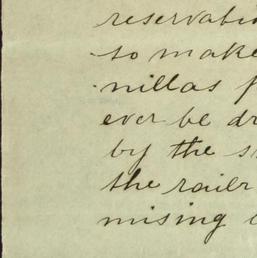 reservatio
to make
nillas f
ever be dr
by the s
the railr
mising